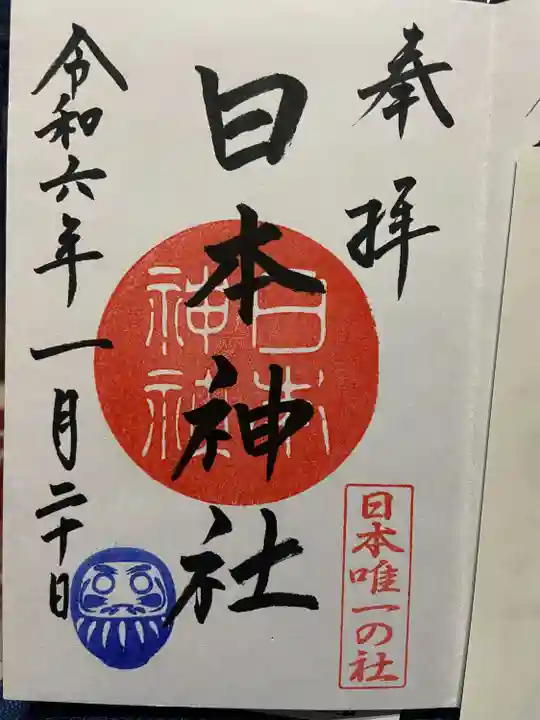 奉拝
日本神社
日本神社
日本唯一の社
令和六年一月二十日